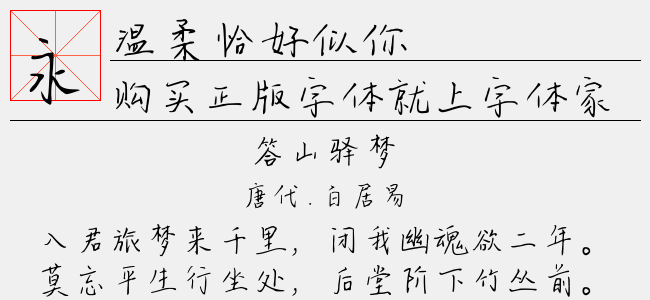 永
温柔恰好似你
购买正版字体就上字体家
答山驿梦
唐代.白居易
入君旅梦来千里，闭我幽魂欲二年。
莫忘平生行坐处，后堂阶下竹丛前。